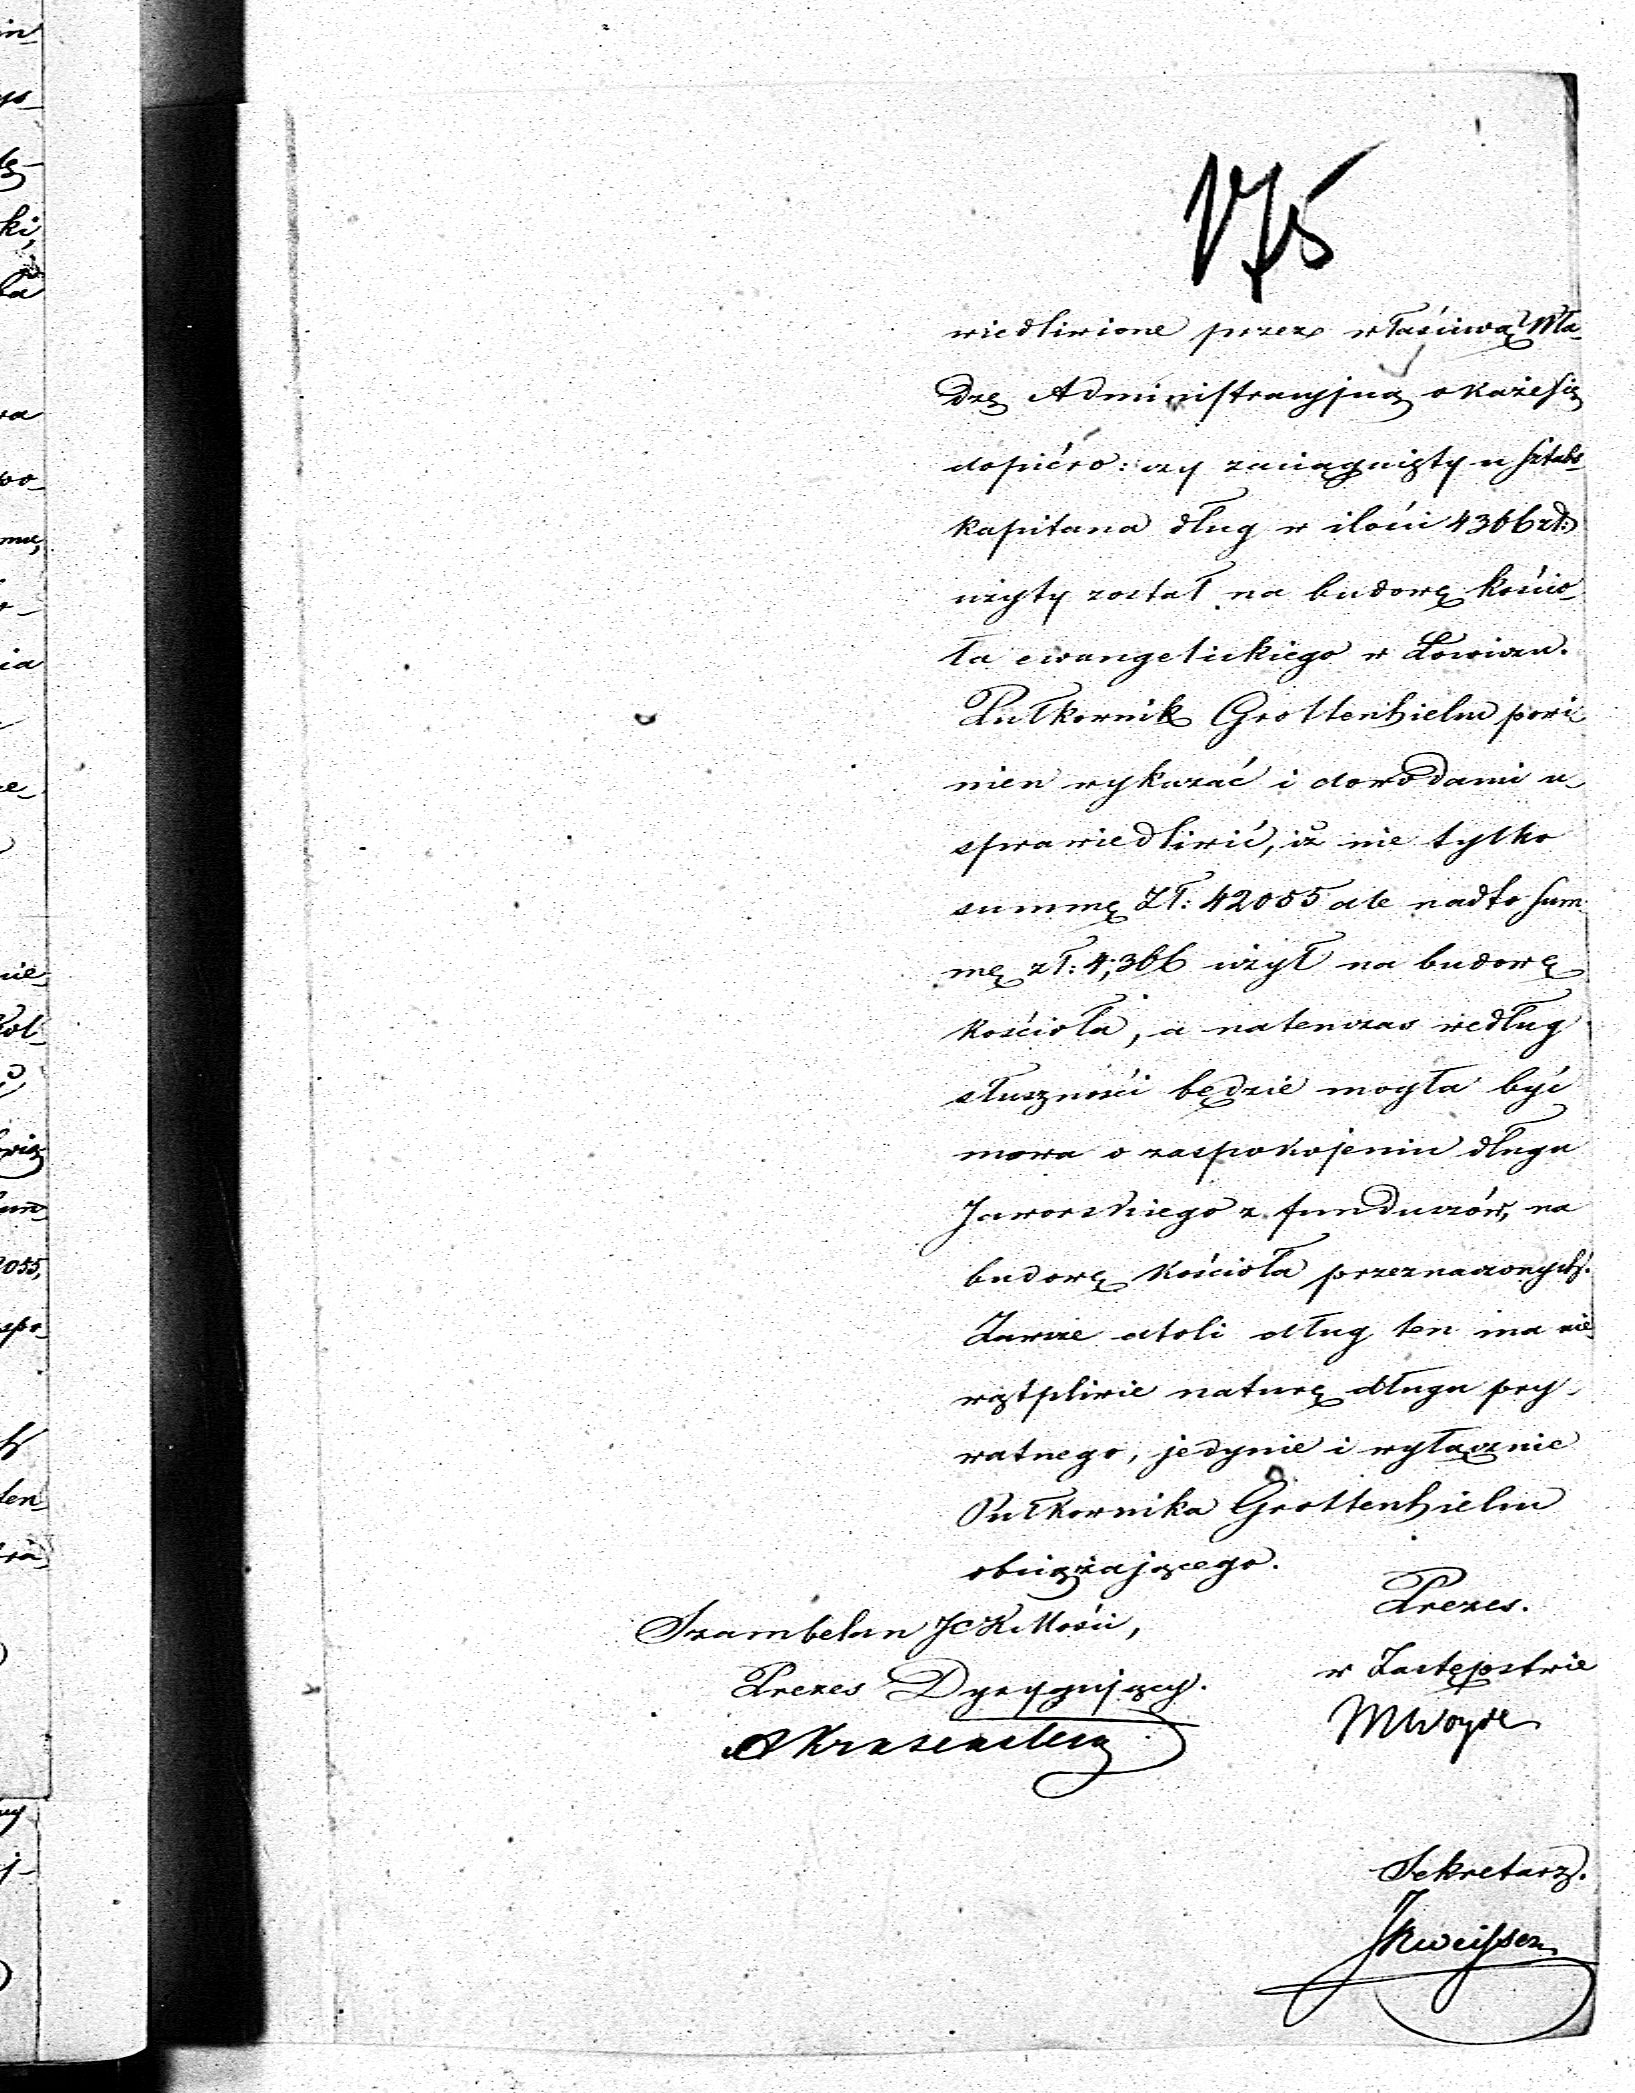 175
wiedliwione przez właściwą Wła-
dzę Administracyjną okaże się
dopiéro: czy zaciągnięty u Sztabs-
kapitana dług w ilości 4366 zł:
użyty został na budowę kościo-
ła ewangelickiego w Łowiczu.
Pułkownik Grottenhielm powi-
nien wykazać i dowodami u-
sprawiedliwić, iż nie tylko
summę Zł: 42055 ale nadto sum-
mę zł: 4,366 użył na budowę
kościoła, a natenczas według
słuszności będzie mogła być
mowa o zaspokojeniu długu
Jaworskiego z funduszów, na
budowę kościoła przeznaczonych.
Zawsze atoli dług ten ma nie-
wątpliwie naturę długu pry-
watnego, jedynie i wyłącznie
Pułkownika Grottenhielm
obciążającego.
Szambelan JCK Mości,
Prezes Dyrygujący.
Prezes.
w Zastępstwie
MWoyde
Sekretarz.